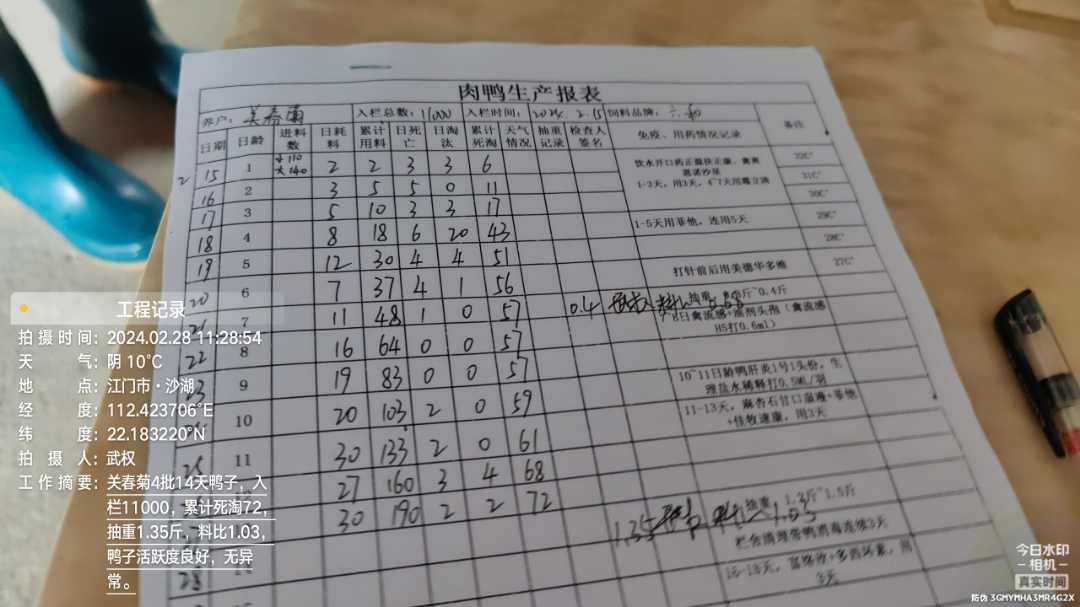 肉鸭生产报表
养户: 关春菊 入栏总数: 11000 入栏时间: 2024. 2.15 饲料品牌: 六和
日期 日龄 进料数 日耗料 累计用料 日死亡 日淘汰 累计死淘 天气情况 抽重记录 检查人签名 免疫、用药情况记录 备注
2 15 1 小110 大140 2 2 3 3 6 32C°
1-3天，用3天，4~7天用
16 2 3 5 5 0 11 31C°
30C°
17 3 5 10 3 3 17
1-5天用菲他，连用5天 29C°
18 4 8 18 6 20 43 28C°
19 5 12 30 4 4 51 打针前后用美德华多维 27C°
20 6 7 37 4 1 56
21 7 11 48 1 0 57 0.4 抽重 ~0.4斤
8日禽流感+ （禽流感H5打0.6ml）
22 8 16 64 0 0 57
23 9 19 83 0 0 57
10~11日龄鸭肝炎1号1头份，生理盐水稀释打0.5ML/羽
10 20 103 2 0 59
11-13天，麻杏石甘口溶液+菲他+佳牧速康，用3天
11 30 133 2 0 61
27 160 3 4 68
30 190 2 2 72
1.35 抽重, 1.3斤~1.5斤 1.03
栏舍清理带鸭消毒连续3天
3天
工程记录
拍摄时间: 2024.02.28 11:28:54
天气: 阴 10℃
地点: 江门市·沙湖
经度: 112.423706°E
纬度: 22.183220°N
拍摄人: 武权
工作摘要: 关春菊4批14天鸭子，入
栏11000，累计死淘72，
抽重1.35斤，料比1.03，
鸭子活跃度良好，无异
常。
今日水印
-相机-
真实时间
防伪 3GMYMHA3MR4G2X